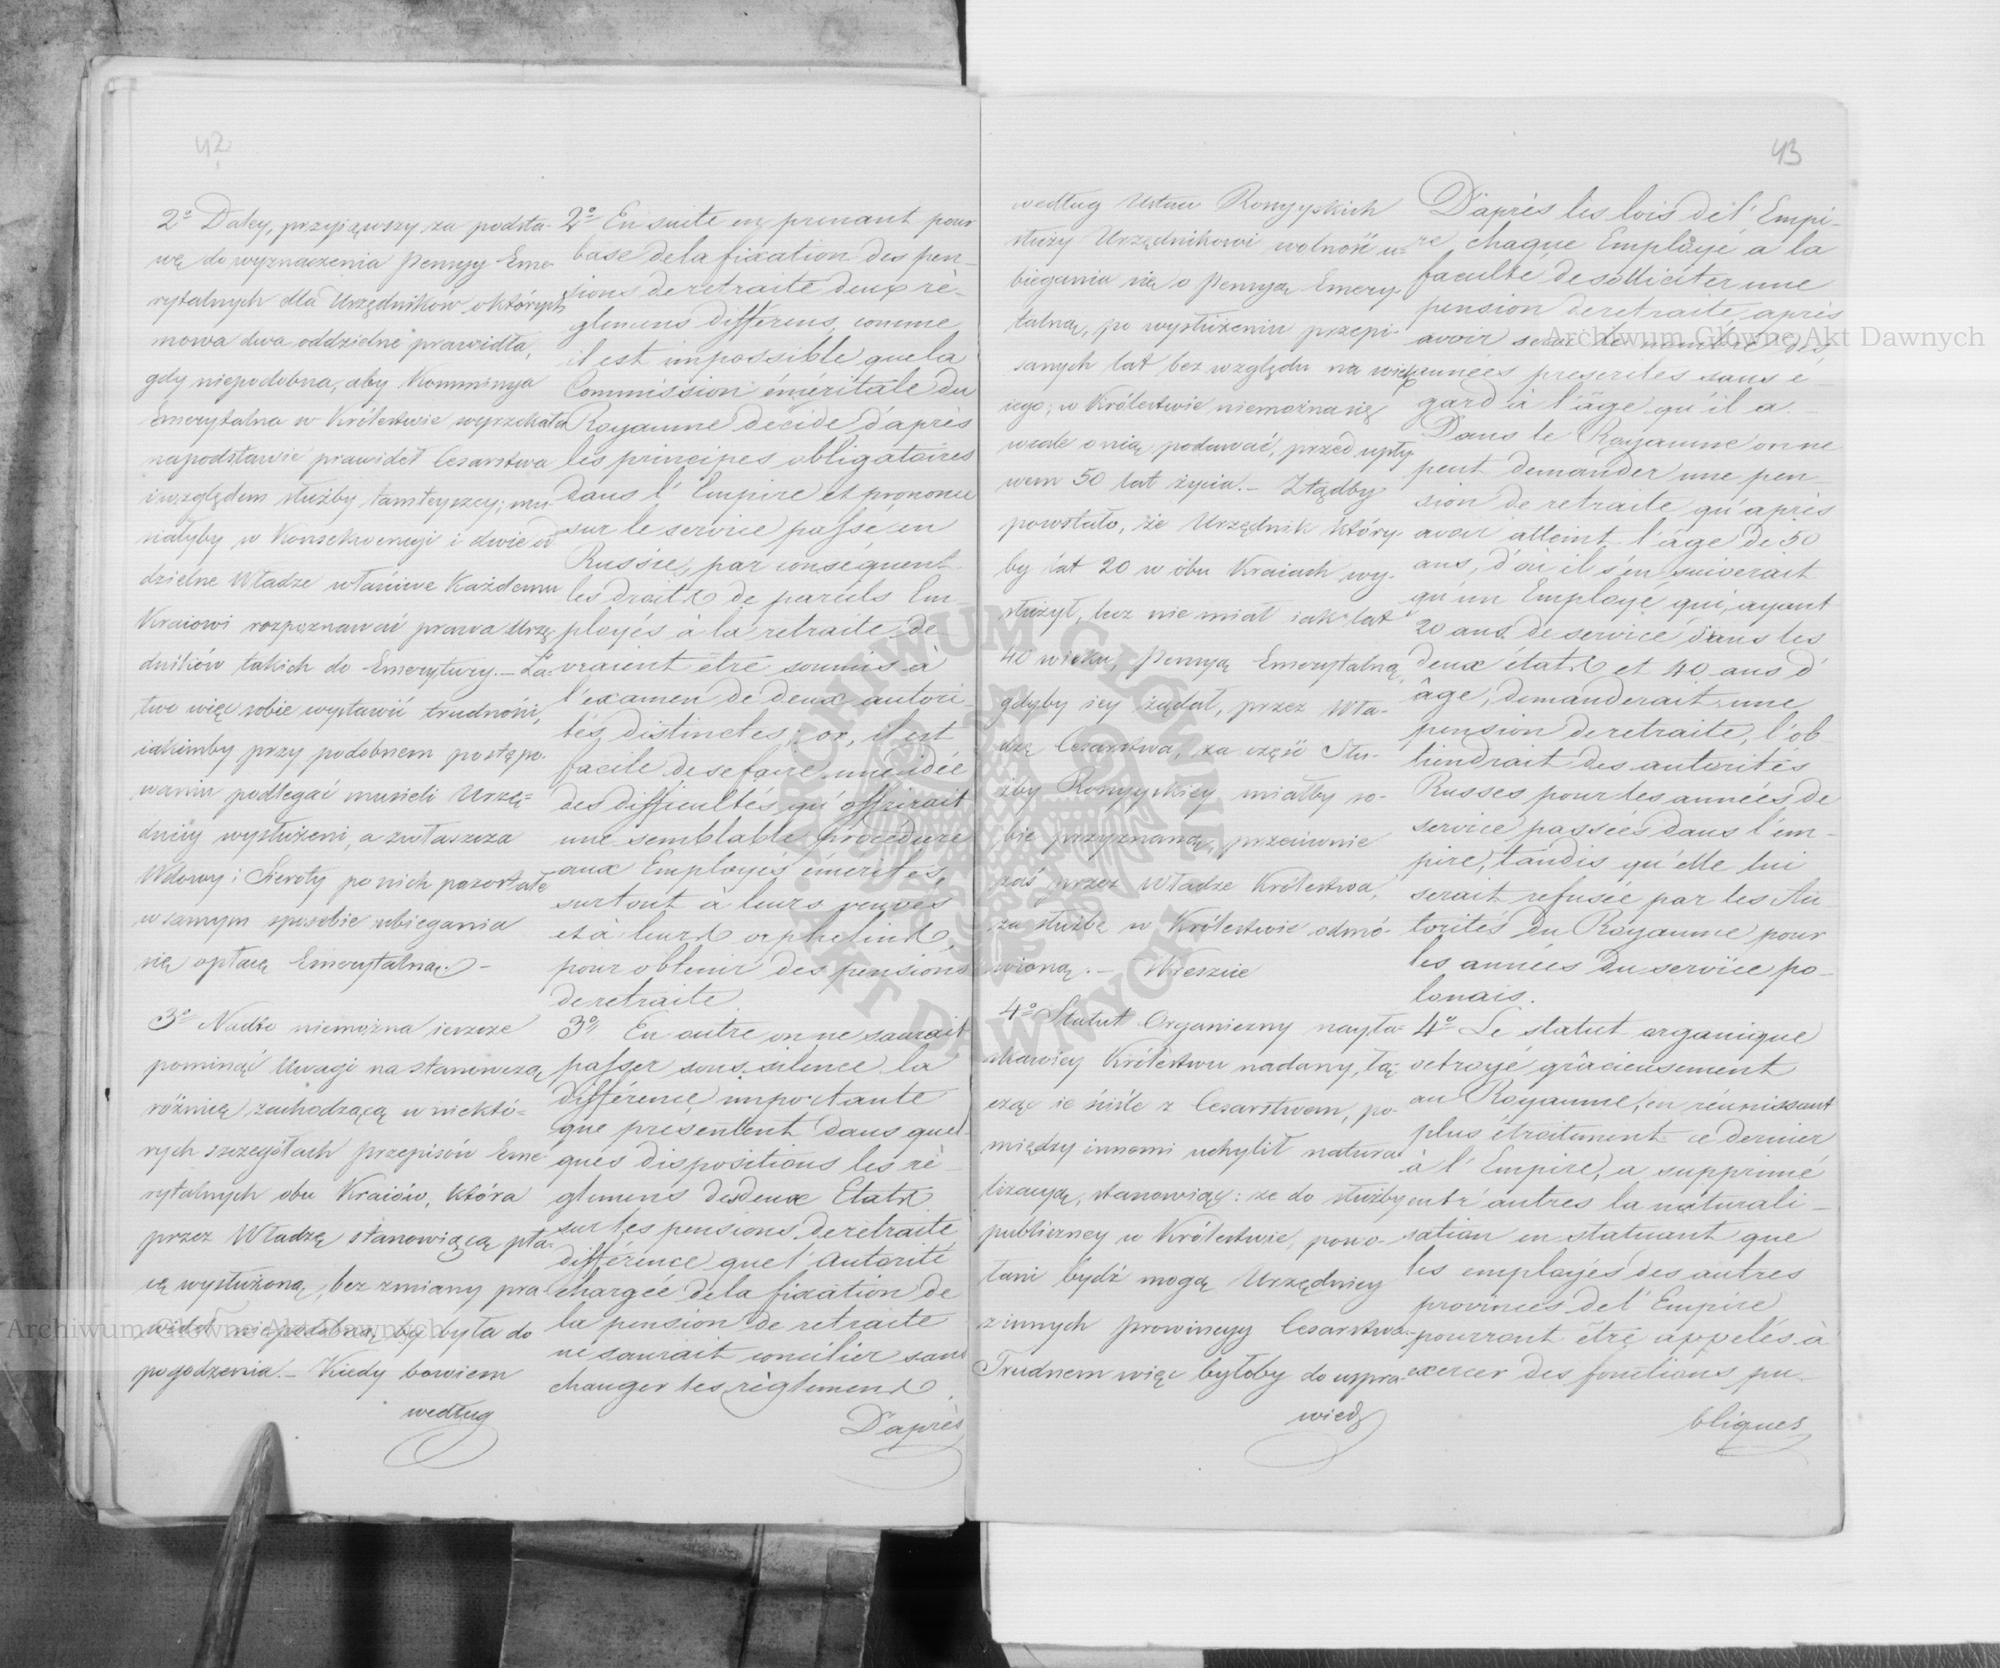 42
2º Daley, przyjąwszy za podsta-
wę do wyznaczenia Pensyy Eme-
rytalnych dla Urzędników o których
mowa dwa oddzielne prawidła,
gdy niepodobna, aby Kommissya
Emerytalna w Królestwie wyrzekała
na podstawie prawideł Cesarstwa
i względem służby tamteyszey; mu-
siałyby w Konsekwencyi i dwie od
dzielne Władze właściwe Każdemu
Kraiowi rozpoznawać prawa Urzę
dników takich do Emerytury.— Ła-
two więc sobie wystawić trudności,
iakimby przy podobnem postępo-
waniu podlegać musieli Urzę-
dnicy wysłużeni, a zwłaszcza
Wdowy i Sieroty po nich pozostałe
w samym sposobie ubiegania
się o płacę Emerytalną.—
3º Nadto niemożna ieszcze
pominąć Uwagi na stanowczą
różnicę zachodzącą w niektó-
rych szczegółach przepisów Eme
rytalnych obu Kraiów, która
przez Władzę stanowiącą pła-
cę wysłużoną, bez zmiany pra
wideł niepodobna, by była do
pogodzenia.— Kiedy bowiem
według
2º En suite en prenant pour
base de la fixation des pen-
sions de retraite deux rè-
glemens differens, comme
il est impossible que la
Commission éméritale du
Royaume décide d'après
les principes obligatoires
dans l'Empire et prononce
sur le service passé en
Russie, par conséquent
les droits de pareils Em-
ployés à la retraite de
vraient être soumis à
l'examen de deux autori-
tés distinctes; or, il est
facile de se faire une idée
des difficultés qu'offrirait
une semblable procédure
aux Employés émérites,
surtout à leurs veuves
et à leurs orphelins,
pour obtenir des pensions
de retraite.
3º En outre on ne saurait
passer sous silence la
différence importante
que presentent dans quel-
ques dispositions les rè-
glemens des deux Etats
sur les pensions de retraite
différence que l'Autorité
chargée de la fixation de
la pension de retraite
ne saurait concilier sans
changer les règlemens.
D'après
43
według Ustaw Rossyyskich
służy Urzędnikowi wolność u-
biegania się o Pensyą Emery-
talną, po wysłużeniu przepi-
sanych lat bez względu na wiek
iego; w Królestwie niemożna się
wcale o nią podawać, przed upły-
wem 50 lat życia.— Ztądby
powstało, że Urzędnik który-
by lat 20 w obu Kraiach wy-
służył, lecz nie miał iak lat
40 wieku, Pensyą Emerytalną,
gdyby iey żądał, przez Wła-
dzę Cesarstwa, za część Słu-
żby Rossyyskiey miałby so-
bie przyznaną, przeciwnie
zaś przez Władze Królestwa,
za służbę w Królestwie odmó-
wioną.— Wreszcie
4º Statut Organiczny nayła-
skawiey Królestwu nadany, łą-
cząc ie ściśle z Cesarstwem, po-
między innemi uchylił natura-
lizacyą, stanowiąc: że do służby
publiczney w Królestwie, powo-
łani bydź mogą Urzędnicy
z innych prowincyy Cesarstwa.
Trudnem więc byłoby do uspra-
wiedl
D'après les lois de l'Empi-
re, chaque Employé a la
faculté de solliciter une
pension de retraite, après
avoir servi le nombre des
années prescrites sans é
gard à l'âge qu'il a.—
Dans le Royaume on ne
peut demander une pen
sion de retraite qu'après
avoir atteint l'âge de 50
ans, d'où il s'en suiverait
qu'un Employé qui, ayant
20 ans de service dans les
deux états et 40 ans d'
âge, demanderait une
pension de retraite, l'ob
tiendrait des autorités
Russes pour les années de
service passées dans l'em-
pire, tandis qu'elle lui
serait refusée par les Au
torités du Royaume pour
les années du service po-
lonais.
4º Le statut organique
octroyé grâcieusement
au Royaume, en réunissant
plus étroitement ce dernier
à l'Empire, a supprimé
entr'autres la naturali-
sation en statuant que
les employés des autres
provinces de l'Empire
pourront être appelés à
exercer des fonctions pu-
bliques
Archiwum Główne Akt Dawnych
Archiwum Główne Akt Dawnych
ARCHIWUM GŁÓWNE AKT DAWNYCH